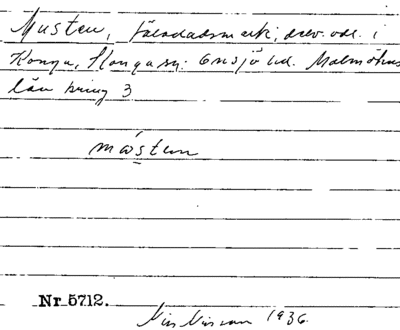 Musten, fäladsmark, drev. odl. i
Konga, Konga sn. Onsjö hd. Malmöhus
län kring 3
måsten
Nr 5712.
Nils Nilsson 1936